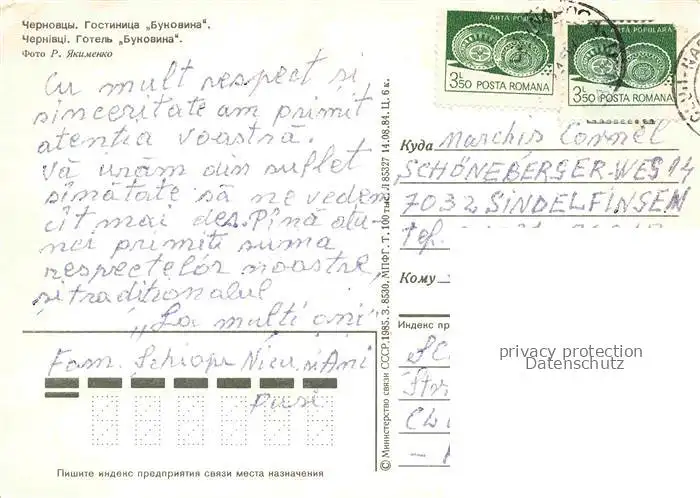 Черновцы. Гостиница „Буковина“.
Чернівці. Готель „Буковина“.
Фото Р. Якименко
ARTA POPULARA
3L50 POSTA ROMANA
ARTA POPULARA
3L50 POSTA ROMANA
Cu mult respect și
sinceritate am primit
atenția voastră.
Vă urăm din suflet
sănătate să ne vedem
cît mai des. Pînă atu-
nci primiți suma
respectelor noastre,
și tradiționalul
„La mulți ani”
Fam. Schiopu Nicu, și Ani
© Министерство связи СССР. 1985. З. 8530. МПФГ. Т. 100 тыс. Л 85327 14.08.84. Ц. 6 к.
Куда Marchiș Cornel
SCHÖNEBERGER-WEG 14
7032 SINDELFINGEN
Tef.
Кому
Индекс пр
Str
privacy protection
Datenschutz
Пишите индекс предприятия связи места назначения